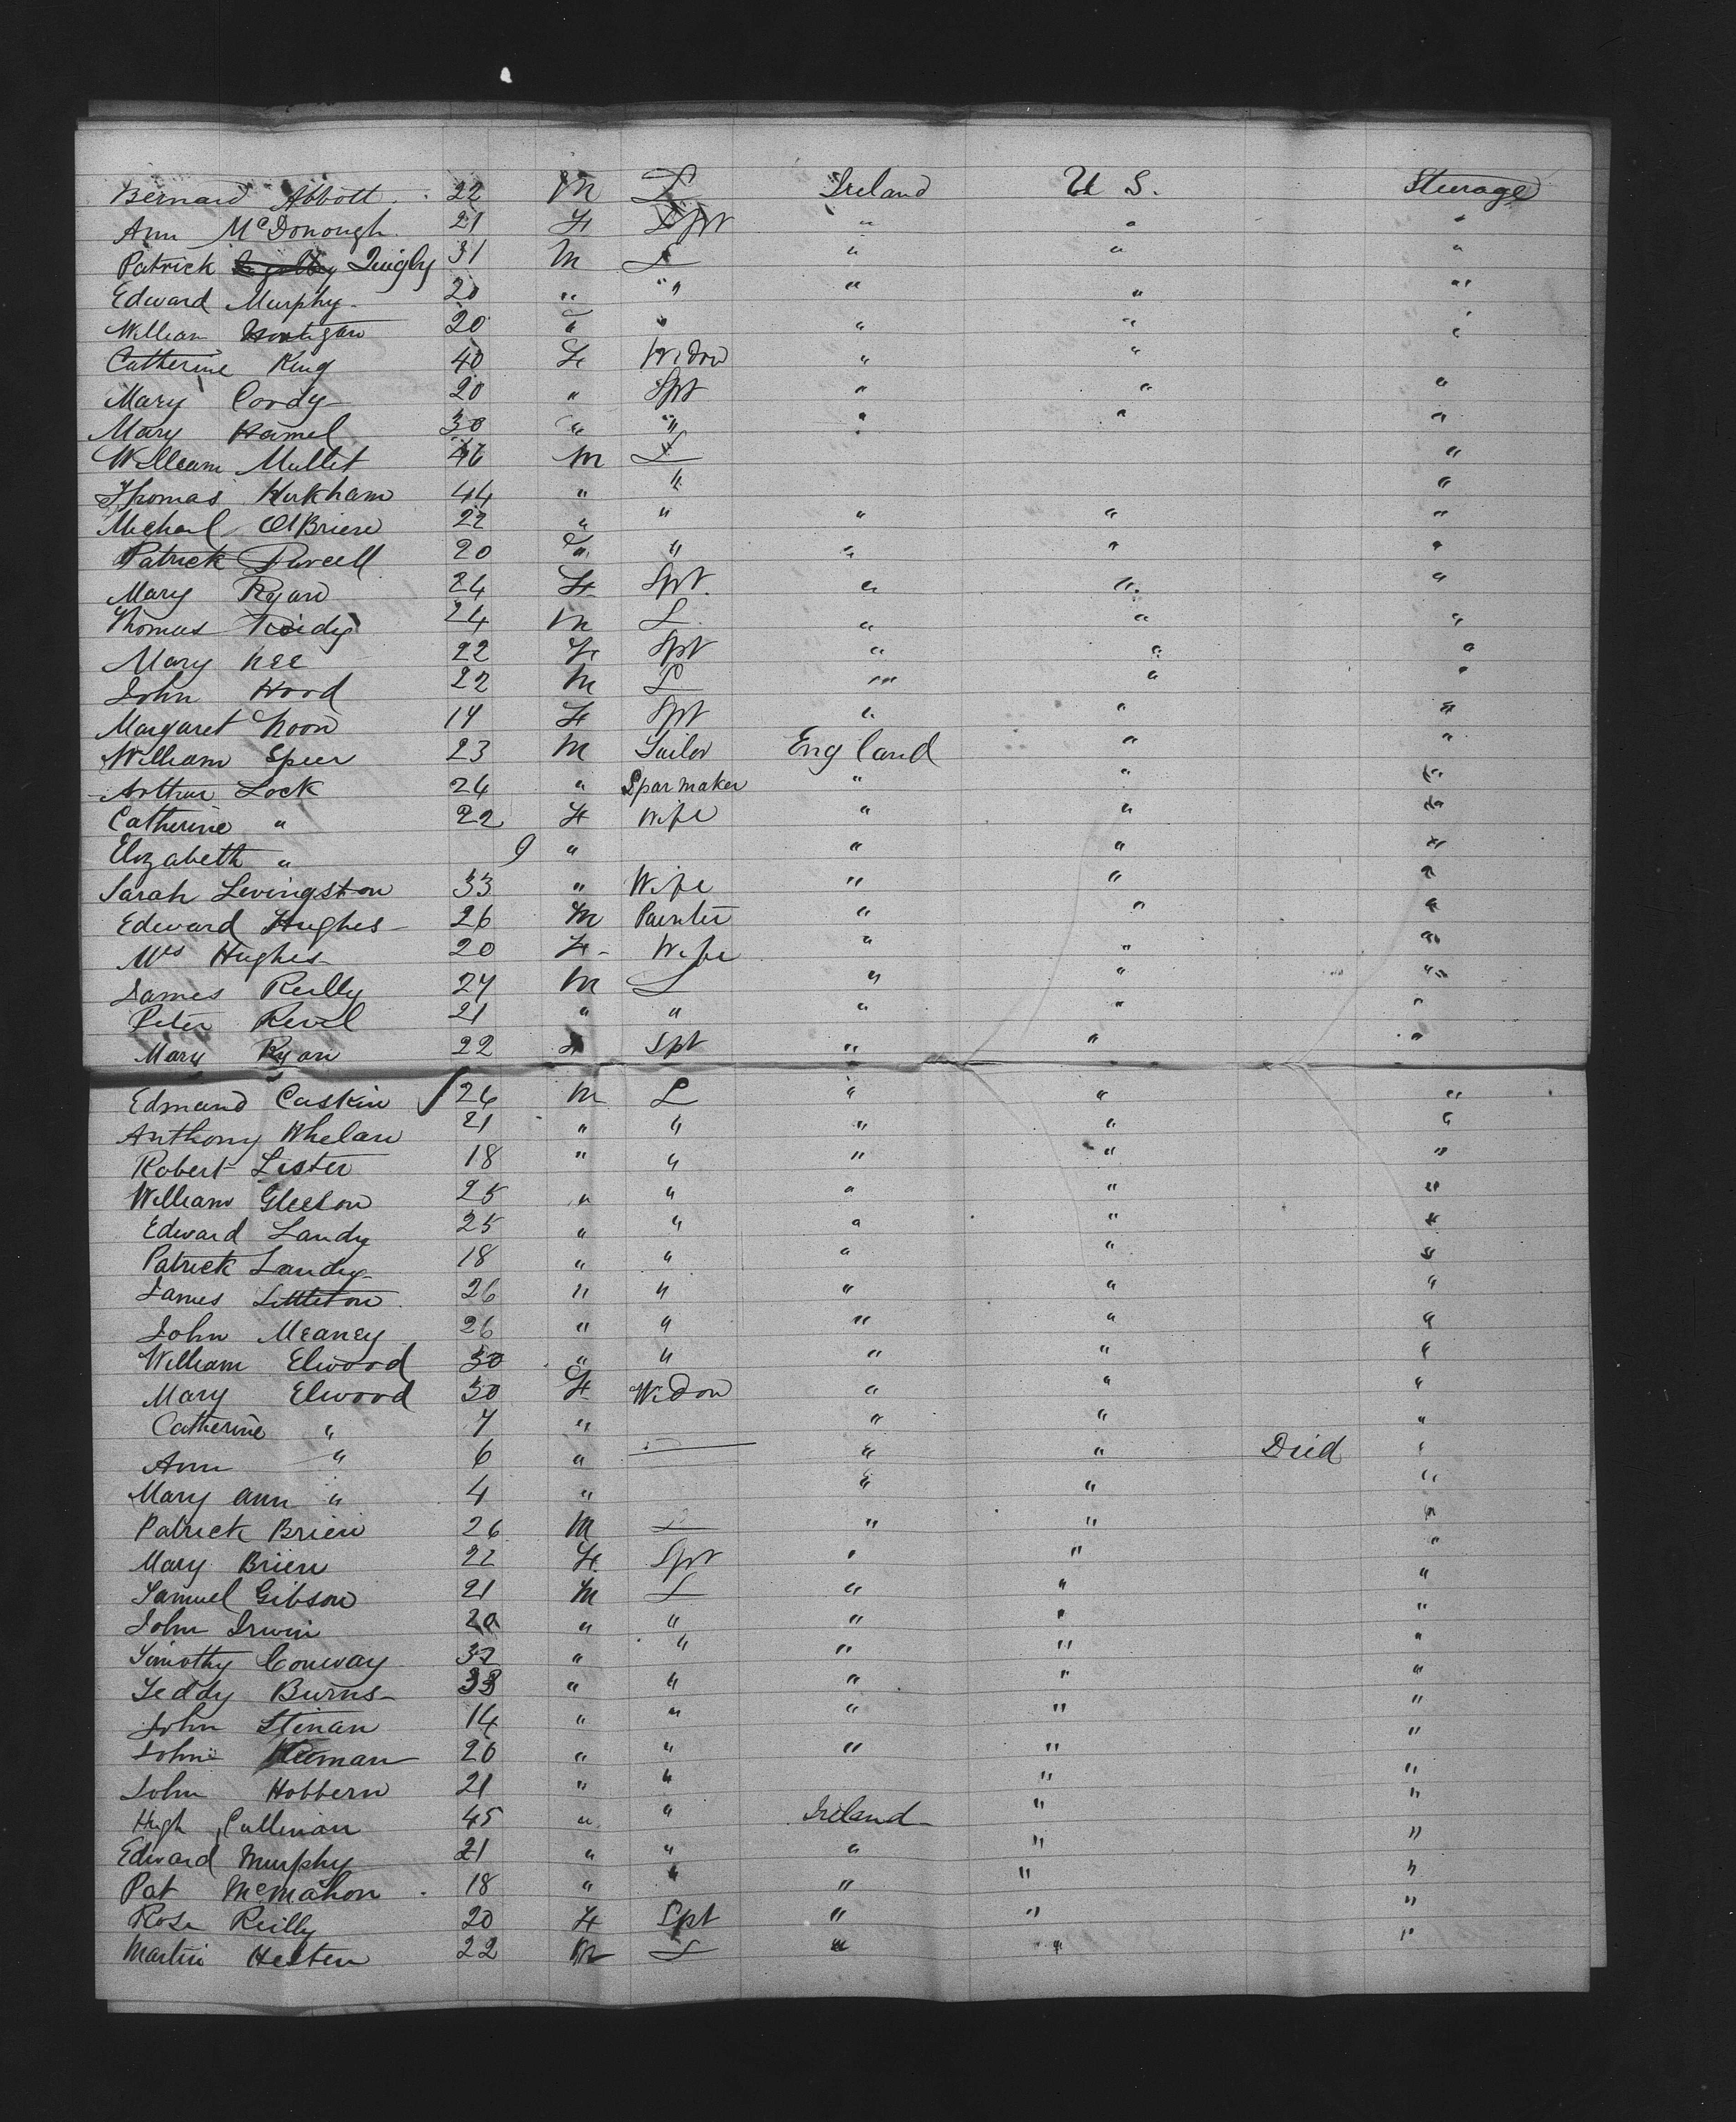 Bernard Abbott 22 M L Ireland U S. Steerage
Ann McDonough 21 F Spt " " "
Patrick Quigly 31 M L " " "
Edward Murphy 20 " " " " "
William 20 " " " " "
Catherine King 40 F Widow " "
Mary Cordy 20 " Spt " " "
Mary Hamel 30 " " " " "
William Mullet 46 M L "
Thomas Kirkham 44 " " "
Michael O'Brien 22 " " " " "
Patrick Purcell 20 " " " " "
Mary Ryan 24 F Spt. " " "
Thomas 24 M L " " "
Mary Nee 22 F Spt " " "
John Hood 22 M L " " "
Margaret Noon 14 F Spt " " "
William Speer 23 M Sailor England " "
Arthur Lock 24 " Sparmaker " " "
Catherine " 22 F Wife " " "
Elizabeth " 9 " " " "
Sarah Levingston 33 " Wife " " "
Edward Hughes 26 M Painter " " "
Mrs Hughes 20 F Wife " " "
James Reilly 24 M L " " "
Peter Revel 21 " " " " "
Mary Ryan 22 F Spt " " "
Edmand Caskin 26 M L " " "
Anthony Whelan 21 " " " " "
Robert Lister 18 " " " " "
William Gleeson 25 " " " " "
Edward Landy 25 " " " " "
Patrick Landy 18 " " " " "
James Littleton 26 " " " " "
John Meaney 26 " " " " "
William Elwood 30 " " " " "
Mary Elwood 30 F Widow " " "
Catherine " 7 " " " "
Ann " 6 " — " " Died "
Mary Ann " 4 " " " "
Patrick Brien 26 M L " " "
Mary Brien 22 F Spt " " "
Samuel Gibson 21 M L " " "
John Irwin 20 " " " " "
Timothy Conway 32 " " " " "
Teddy Burns 33 " " " " "
John Stinan 14 " " " " "
John 20 " " " " "
John Hobbern 21 " " " "
Hugh Cullinan 45 " " Ireland " "
Edward Murphy 21 " " " " "
Pat McMahon 18 " " " " "
Rose Reilly 20 F Spt " " "
Martin Hesten 22 M L " " "